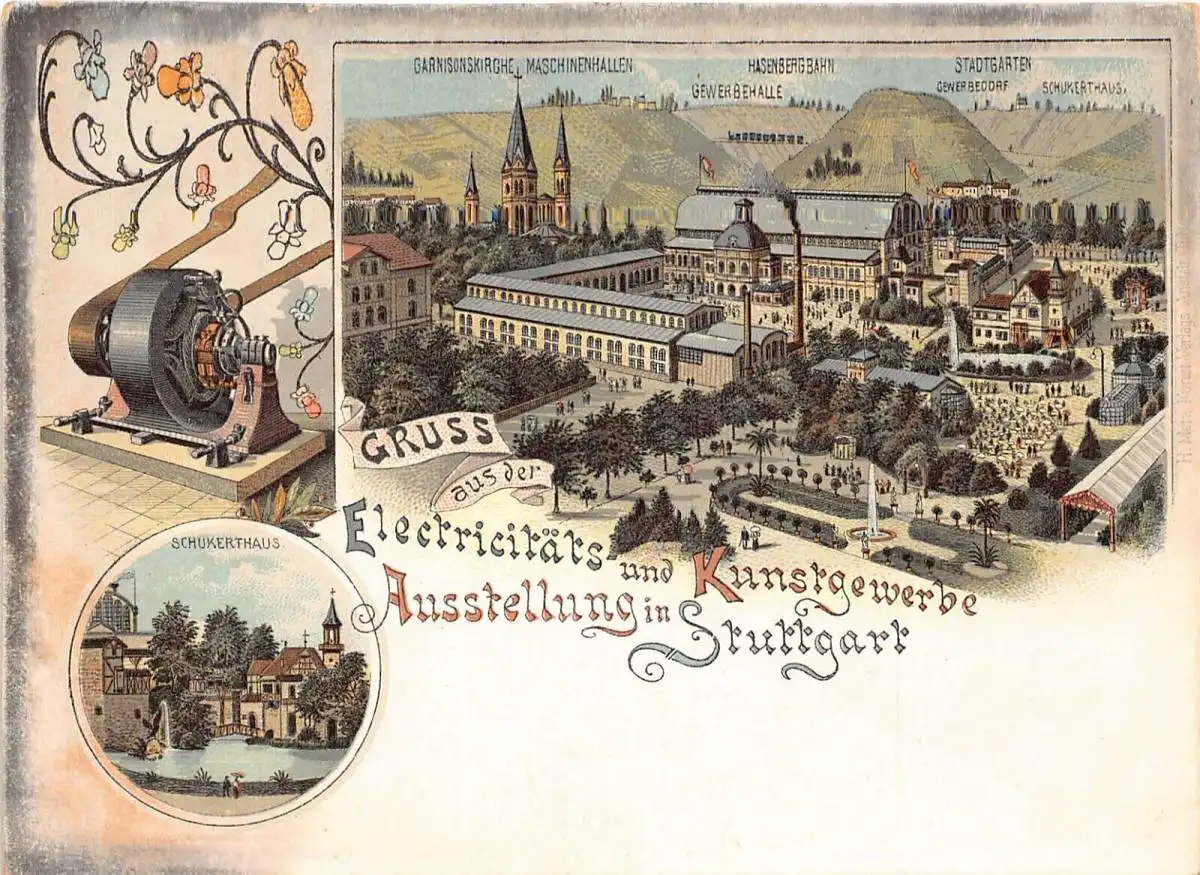 GARNISONSKIRCHE MASCHINENHALLEN HASENBERGBAHN STADTGARTEN
GEWERBEHALLE GEWERBEDORF SCHUKERTHAUS.
GRUSS
aus der
Electricitäts- und Kunstgewerbe
Ausstellung in Stuttgart
SCHUKERTHAUS.